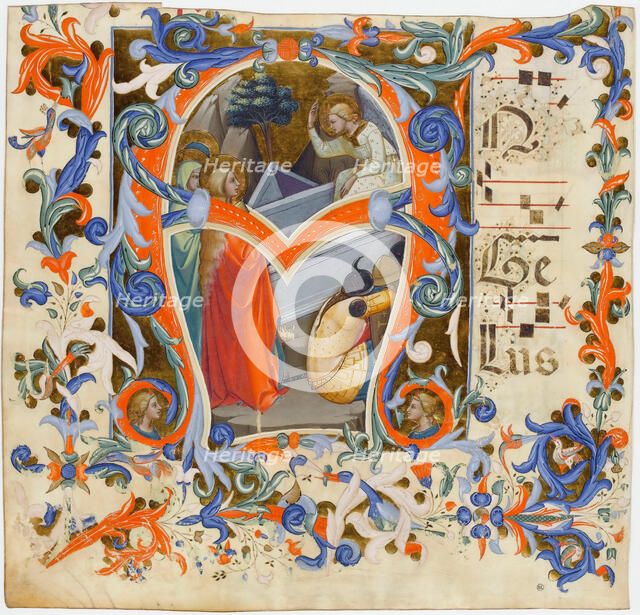 A
N
Heritage Heritage
Ge
Heritage Heritage Heritage
Lus
Heritage Heritage